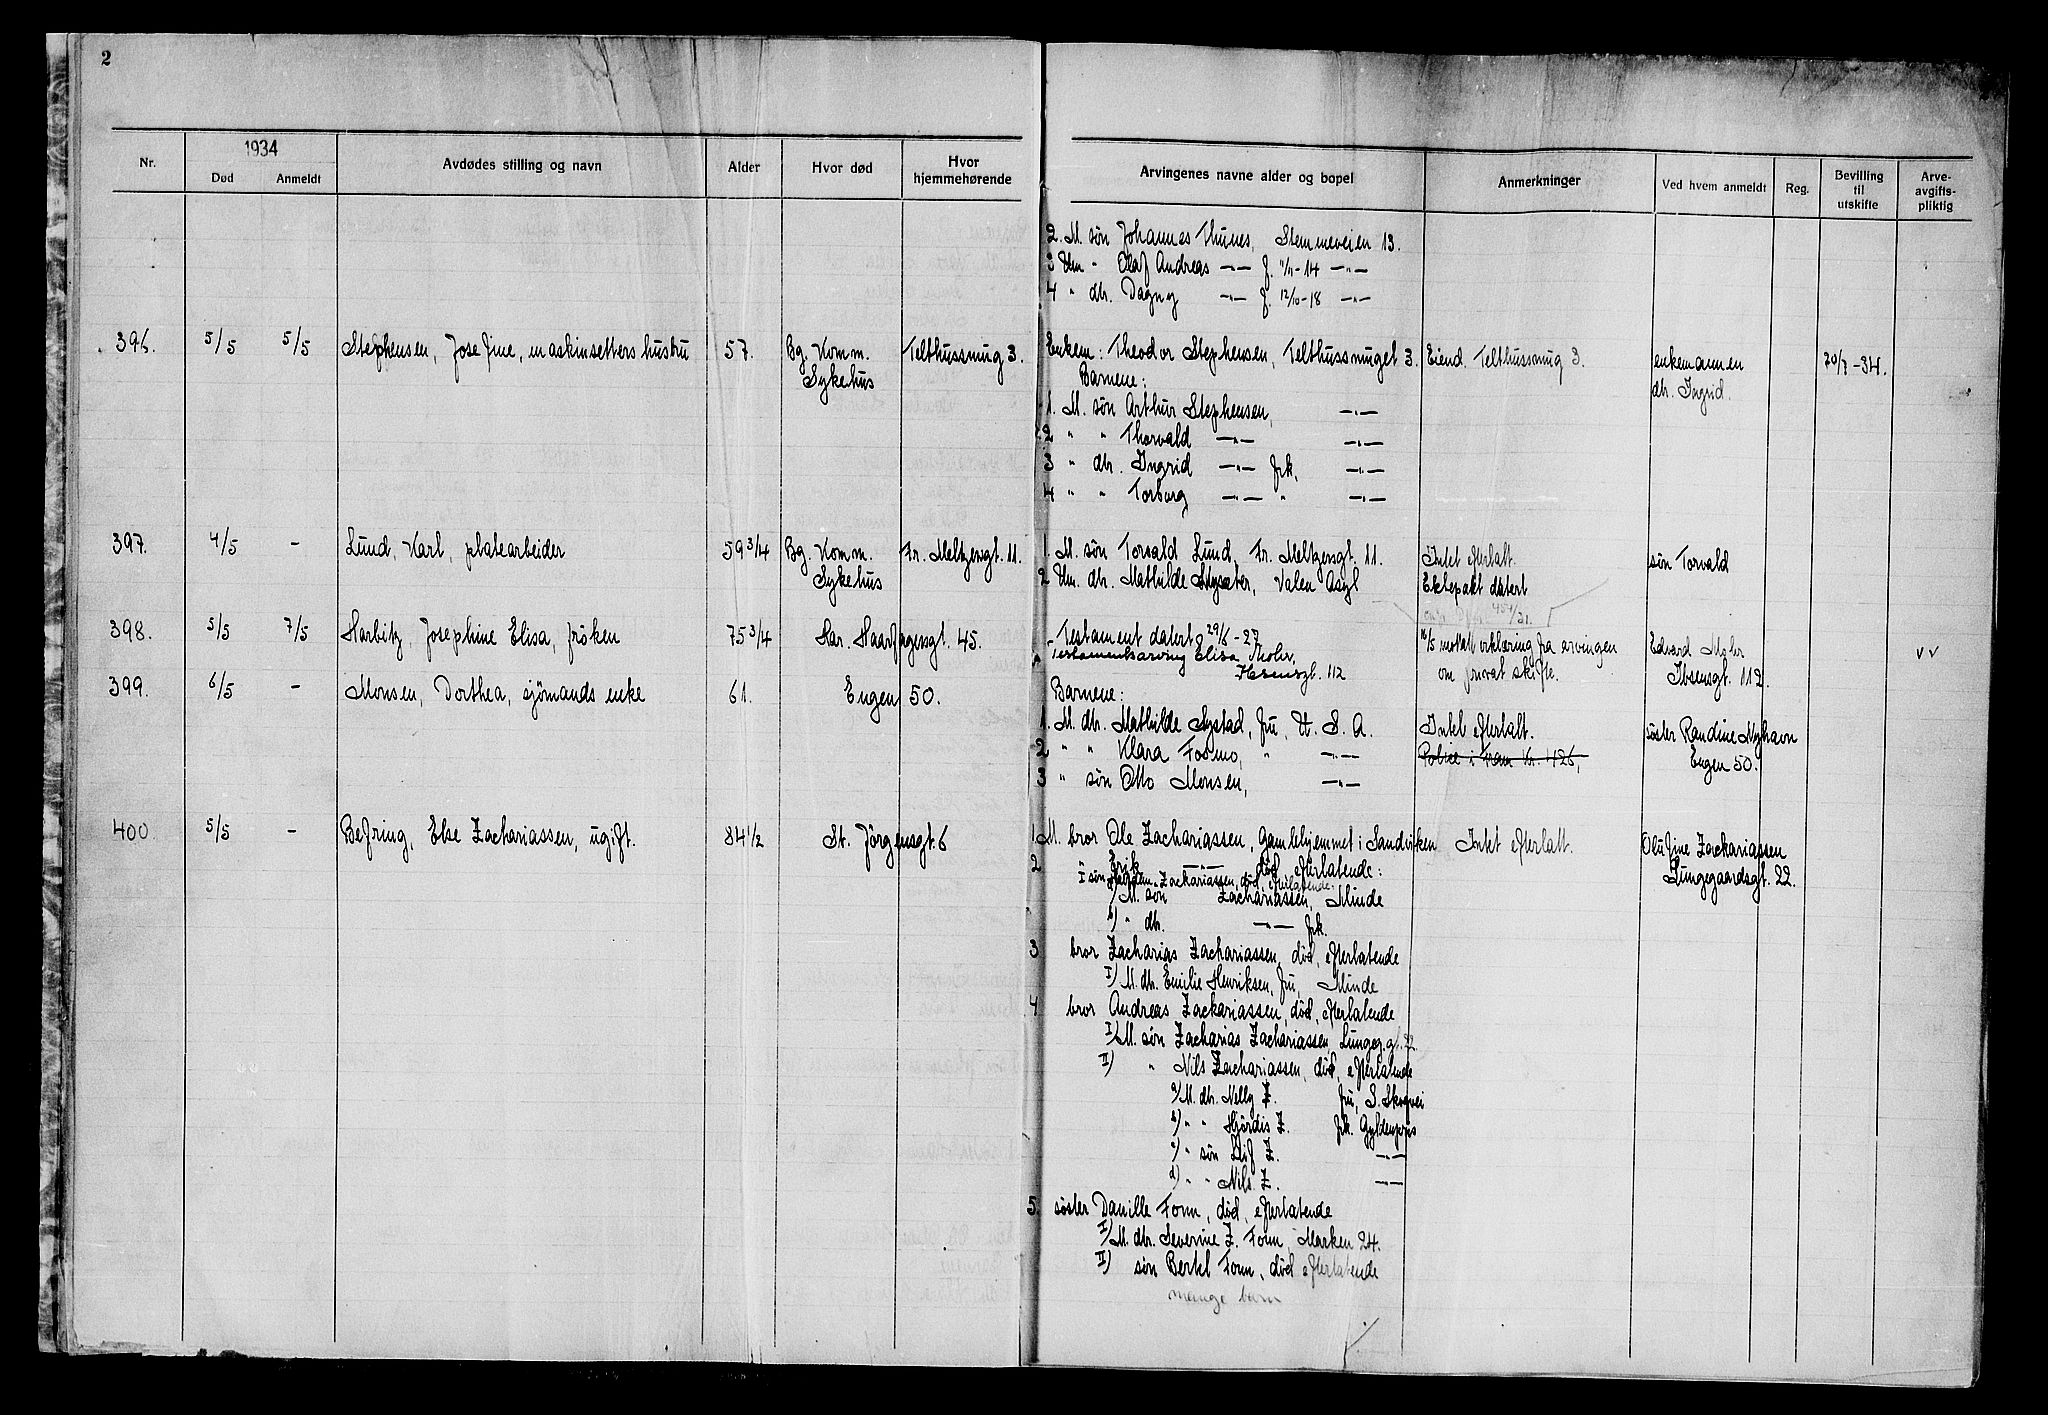 2
Nr.
1934
Død
Anmeldt
Avdødes stilling og navn
Alder
Hvor død
Hvor
hjemmehørende
Arvingenes navne alder og bopel
Anmerkninger
Ved hvem anmeldt
Reg.
Bevilling
til
utskifte
Arve-
avgifts-
pliktig
2. M. søn Johannes Thunes, Stemmeveien 13.
3 Um " Olaf Andreas —"— f. 1/11-14 —"—
4 " dtr. Dagny —"— f. 12/10-18 —"—
396. 5/5 5/5 Stephensen, Josefine, maskinsetters hustru 57. Bg. Komm. Telthussmug 3. Enkem: Theodor Stephensen, Telthussmuget 3. Eiend. Telthussmug 3. enkemannen 20/7-34.
Sykehus Barnene: dtr. Ingrid.
1. M. søn Arthur Stephensen, —"—
2 " " Thorvald —"— —"—
3 " dtr. Ingrid —"— frk, —"—
4 " " Torborg —"— " —"—
397. 4/5 - Lund, Karl, platearbeider 59 3/4 Bg. Komm. Fr. Meltzersgt. 11. 1. M. søn Torvald Lund, Fr. Meltzersgt. 11. Intet efterlatt. søn Torvald
Sykehus 2 Um. dtr. Mathilde Mysæter, Valen Asyl Ektepakt datert
398. 5/5 7/5 Harbitz, Josephine Elisa, frøken 75 3/4 Har. Haarfagersgt. 45. Testament datert 29/6-27 16/5 motatt erklæring fra arvingen Edvard Mohr v v
Testamentsarving Elisa Mohr, om privat skifte. Ibsensgt. 112.
Ibsensgt. 112
399. 6/5 - Monsen, Dorthea, sjømands enke 61. Engen 50. Barnene:
1. M. dtr. Mathilde Systad, fru, U. S. A. Intet efterlatt. søster Randine Myhavn
2 " " Klara Formo, " —"— Police i Fram Kr. 426, Engen 50.
3 " søn Otto Monsen, —"—
400 5/5 - Befring, Else Zachariassen, ugift. 84 1/2 St. Jørgensgt. 6 1. M. bror Ole Zachariassen, Gamlehjemmet i Sandviken Intet efterlatt. Olufine Zackariassen
2 " Erik —"— død efterlatende: Lungegaardsgt. 22.
I søn Zackariassen, død, efterlatende:
a) M. søn Zachariassen, Minde
b) " dtr. —"— frk.
3 bror Zacharias Zachariassen, død, efterlatende
I) M. dtr. Emilie Henriksen, fru, Minde
4 bror Andreas Zackariassen, død, efterlatende
I) M. søn Zacharias Zachariassen Lungeg.gt. 22.
II) " Nils Zachariassen, død, efterlatende
a) M. dtr. Nelly Z fru, S. Skogvei
b) " " Hjørdis Z. frk. Gyldenpris
c) " søn Leif Z. —"—
d) " " Nils Z. —"—
5. søster Danille Fonn, død, efterlatende
I) M. dtr. Severine Z. Fonn, Marken 24.
II) søn Bertel Fonn, død efterlatende
mange barn